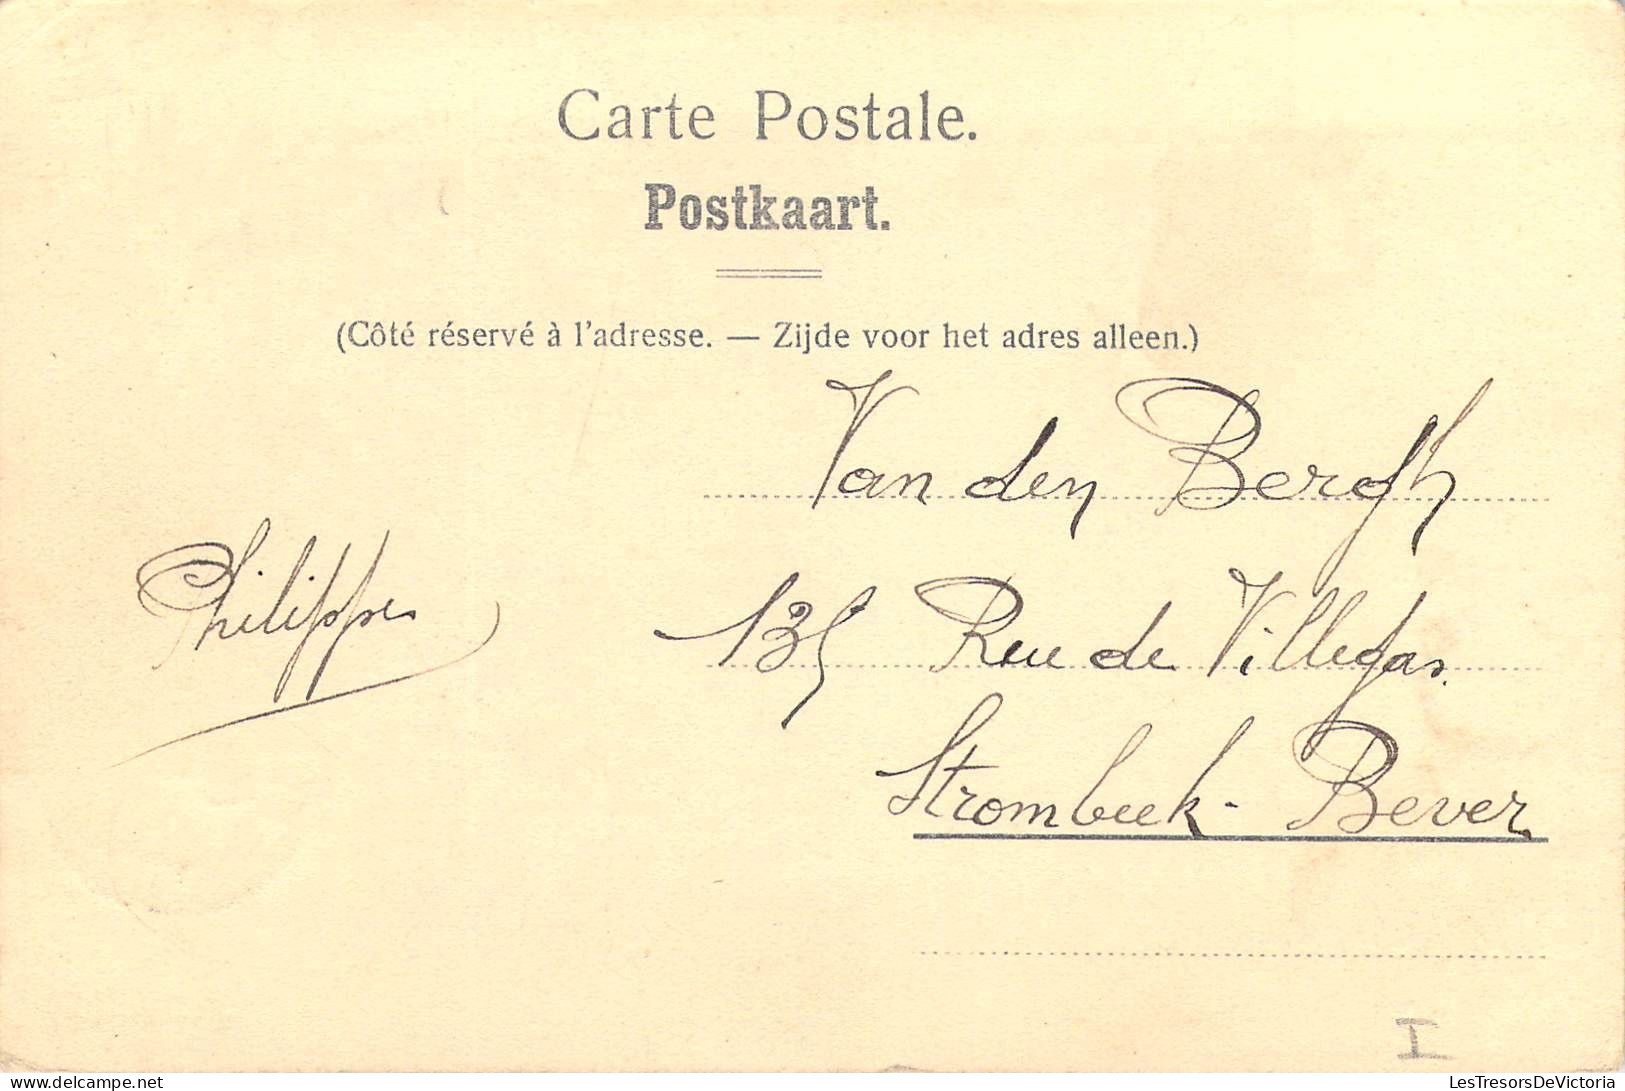 Carte Postale.
Postkaart.
(Côté réservé à l'adresse. — Zijde voor het adres alleen.)
Van den Bergh
Philippe
135 Rue de Villegas.
Strombeek - Bever
I
delcampe.net
LesTresorsDeVictoria